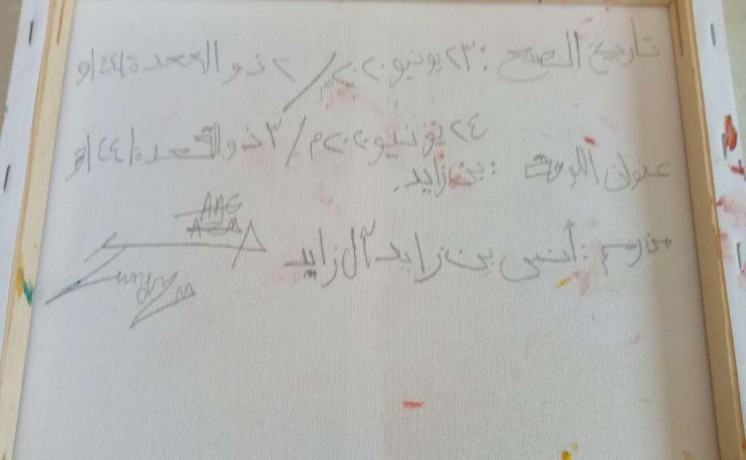 تاريخ الصنع : ٢٣ يونيو ٢٠٢٠م / ٢ ذو القعدة ١٤٤١ه
٢٤ يونيو ٢٠٢٠م / ٣ ذو القعدة ١٤٤١ه
عنوان اللوحة : بن زايد.
من رسم : أنس بن زايد آل زايد